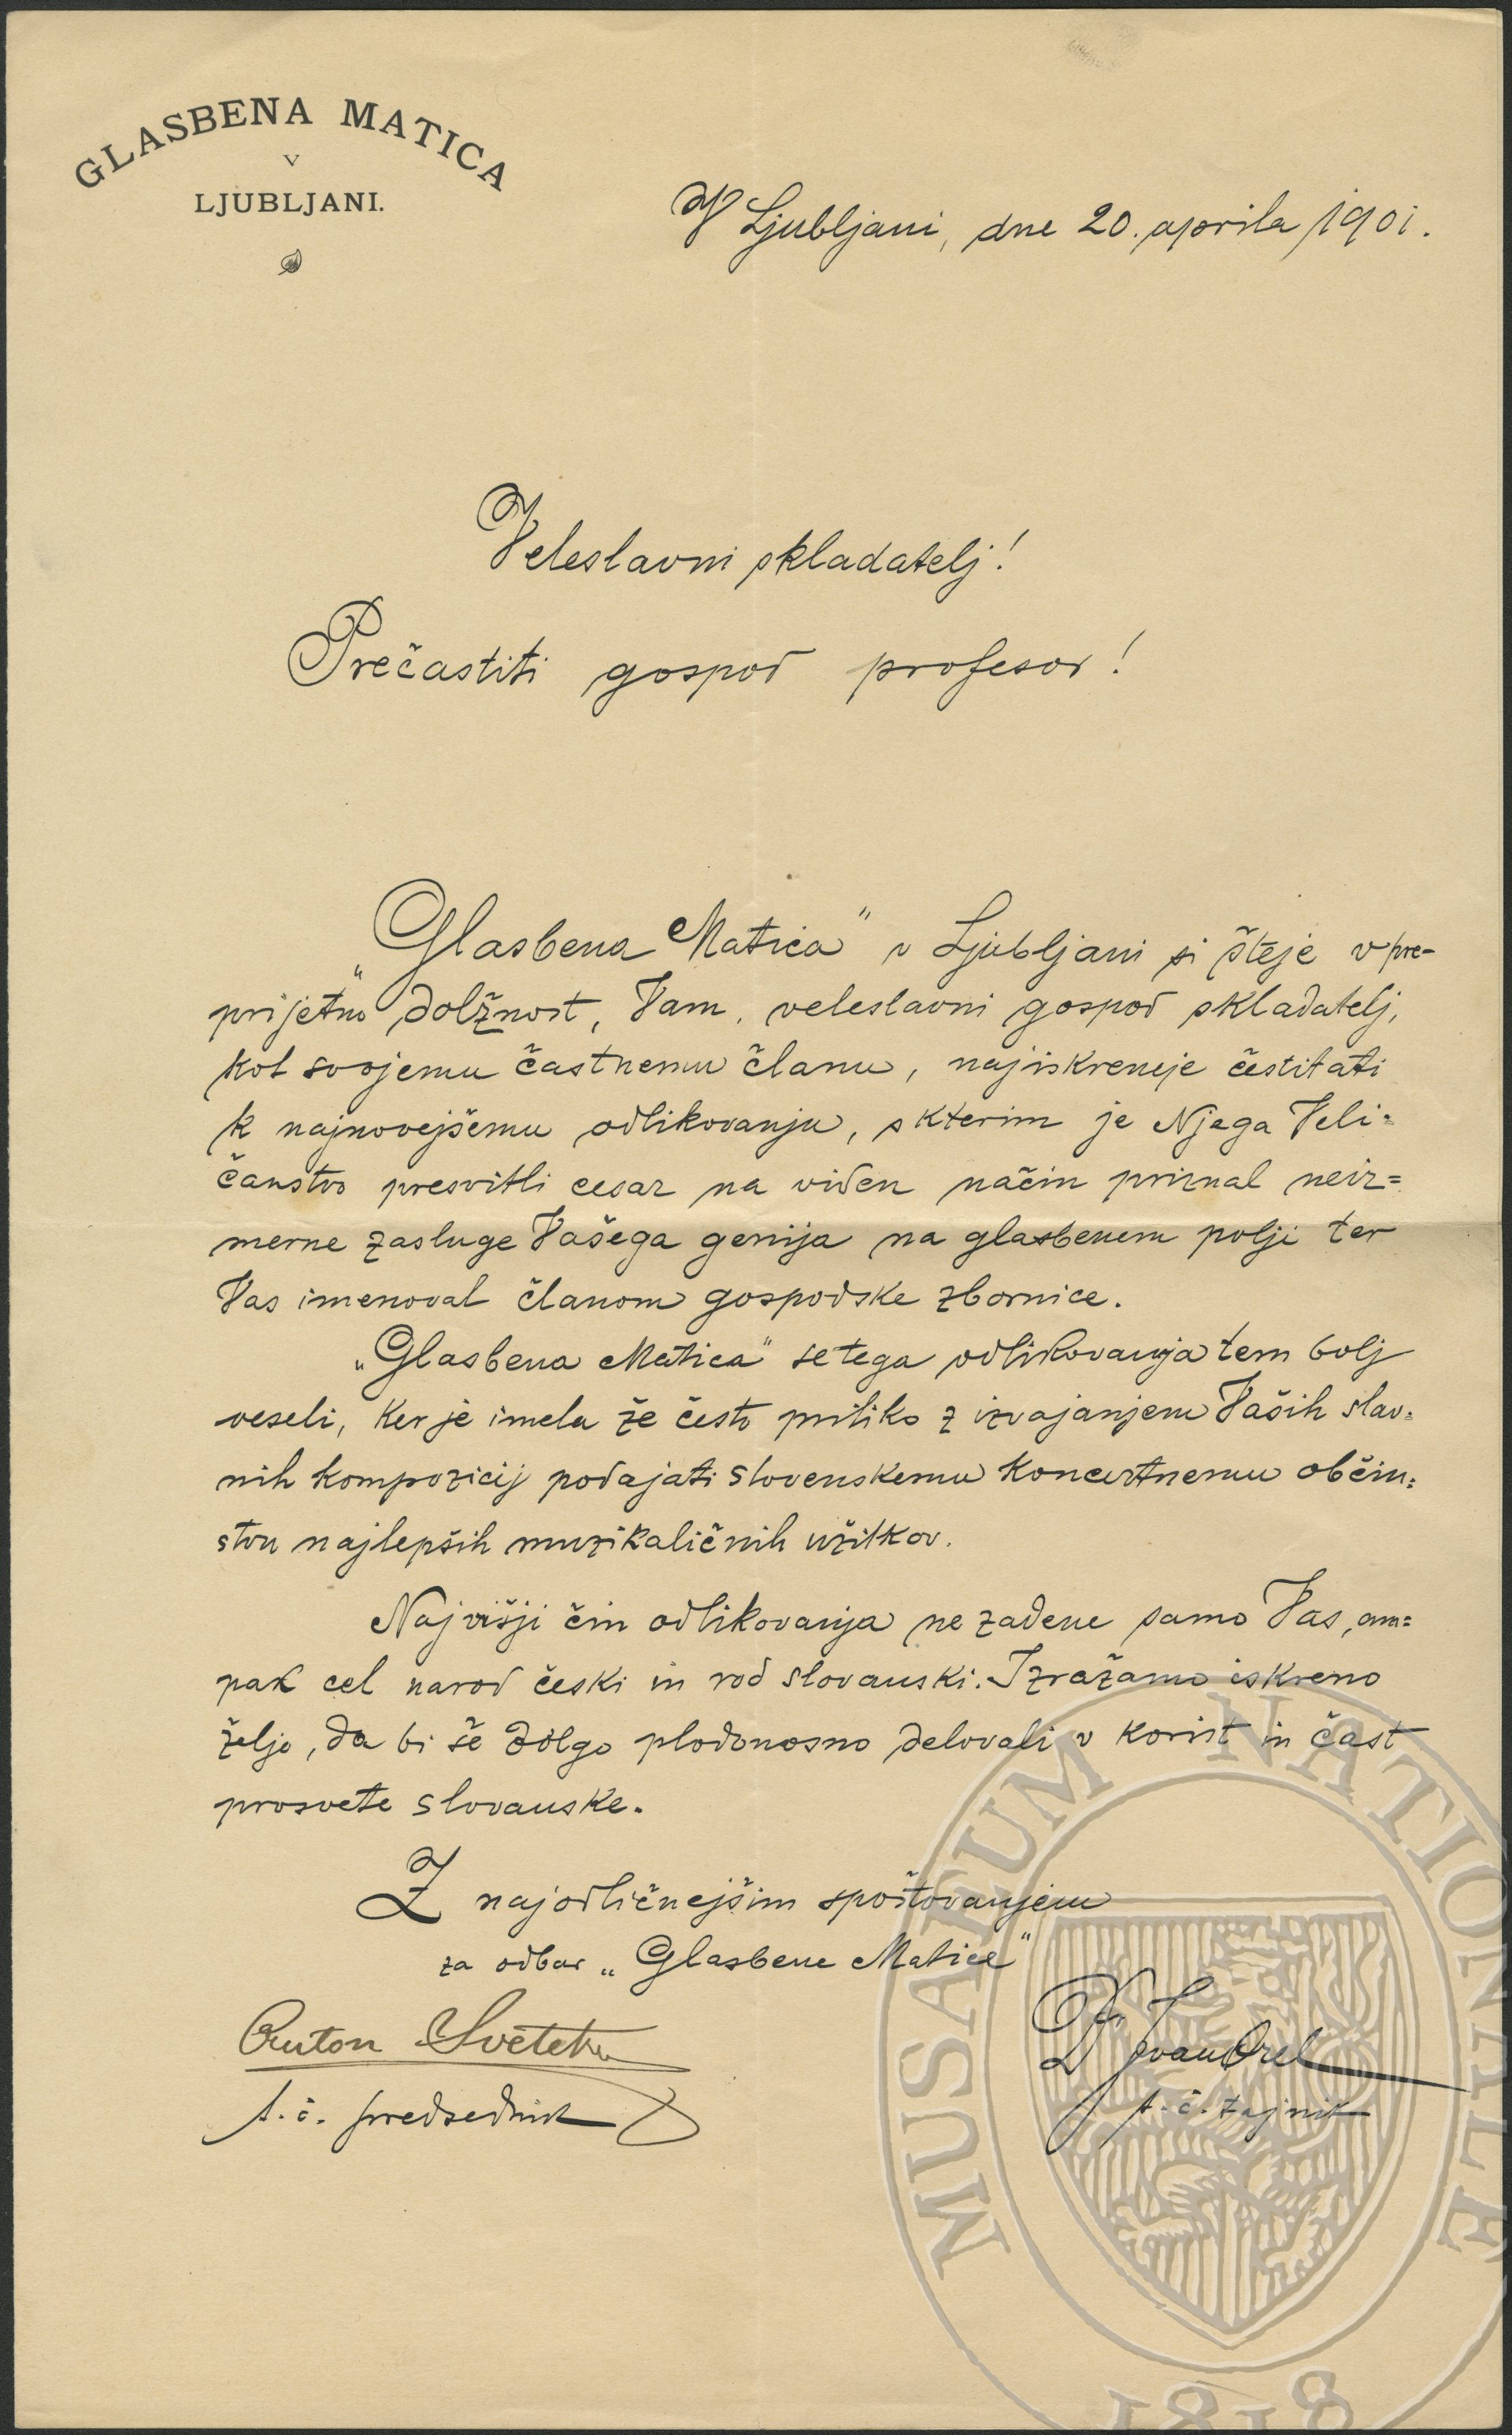 GLASBENA MATICA
V
LJUBLJANI.
V Ljubljani, dne 20. aprila 1901.
Veleslavni skladatelj!
Prečastiti gospod profesor!
„Glasbena Matica" v Ljubljani si šteje v pre-
prijetno dolžnost, Vam, veleslavni gospod skladatelj,
kot svojemu častnemu članu, najiskreneje čestitati
k najnovejšemu odlikovanju, s kterim je Njega Veli=
čanstvo presvitli cesar na viden način priznal neiz=
merne zasluge Vašega genija na glasbenem polji ter
Vas imenoval članom gospodske zbornice.
„Glasbena Matica" se tega odlikovanja tem bolj
veseli, ker je imela že često priliko z izvajanjem Vaših slav=
nih kompozicij podajati slovenskemu koncertnemu občin=
stvu najlepših muzikaličnih užitkov.
Najvišji čin odlikovanja ne zadene samo Vas, am=
pak cel narod češki in rod slovanski. Izražamo iskreno
željo, da bi še dolgo plodonosno delovali v korist in čast
prosvete slovanske.
Z najodličnejšim spoštovanjem
za odbor „Glasbene Matice"
Anton Svetek
t. č. predsednik
Dr Ivan Orel
t. č. tajnik
MUSAEUM NATIONALE
1818